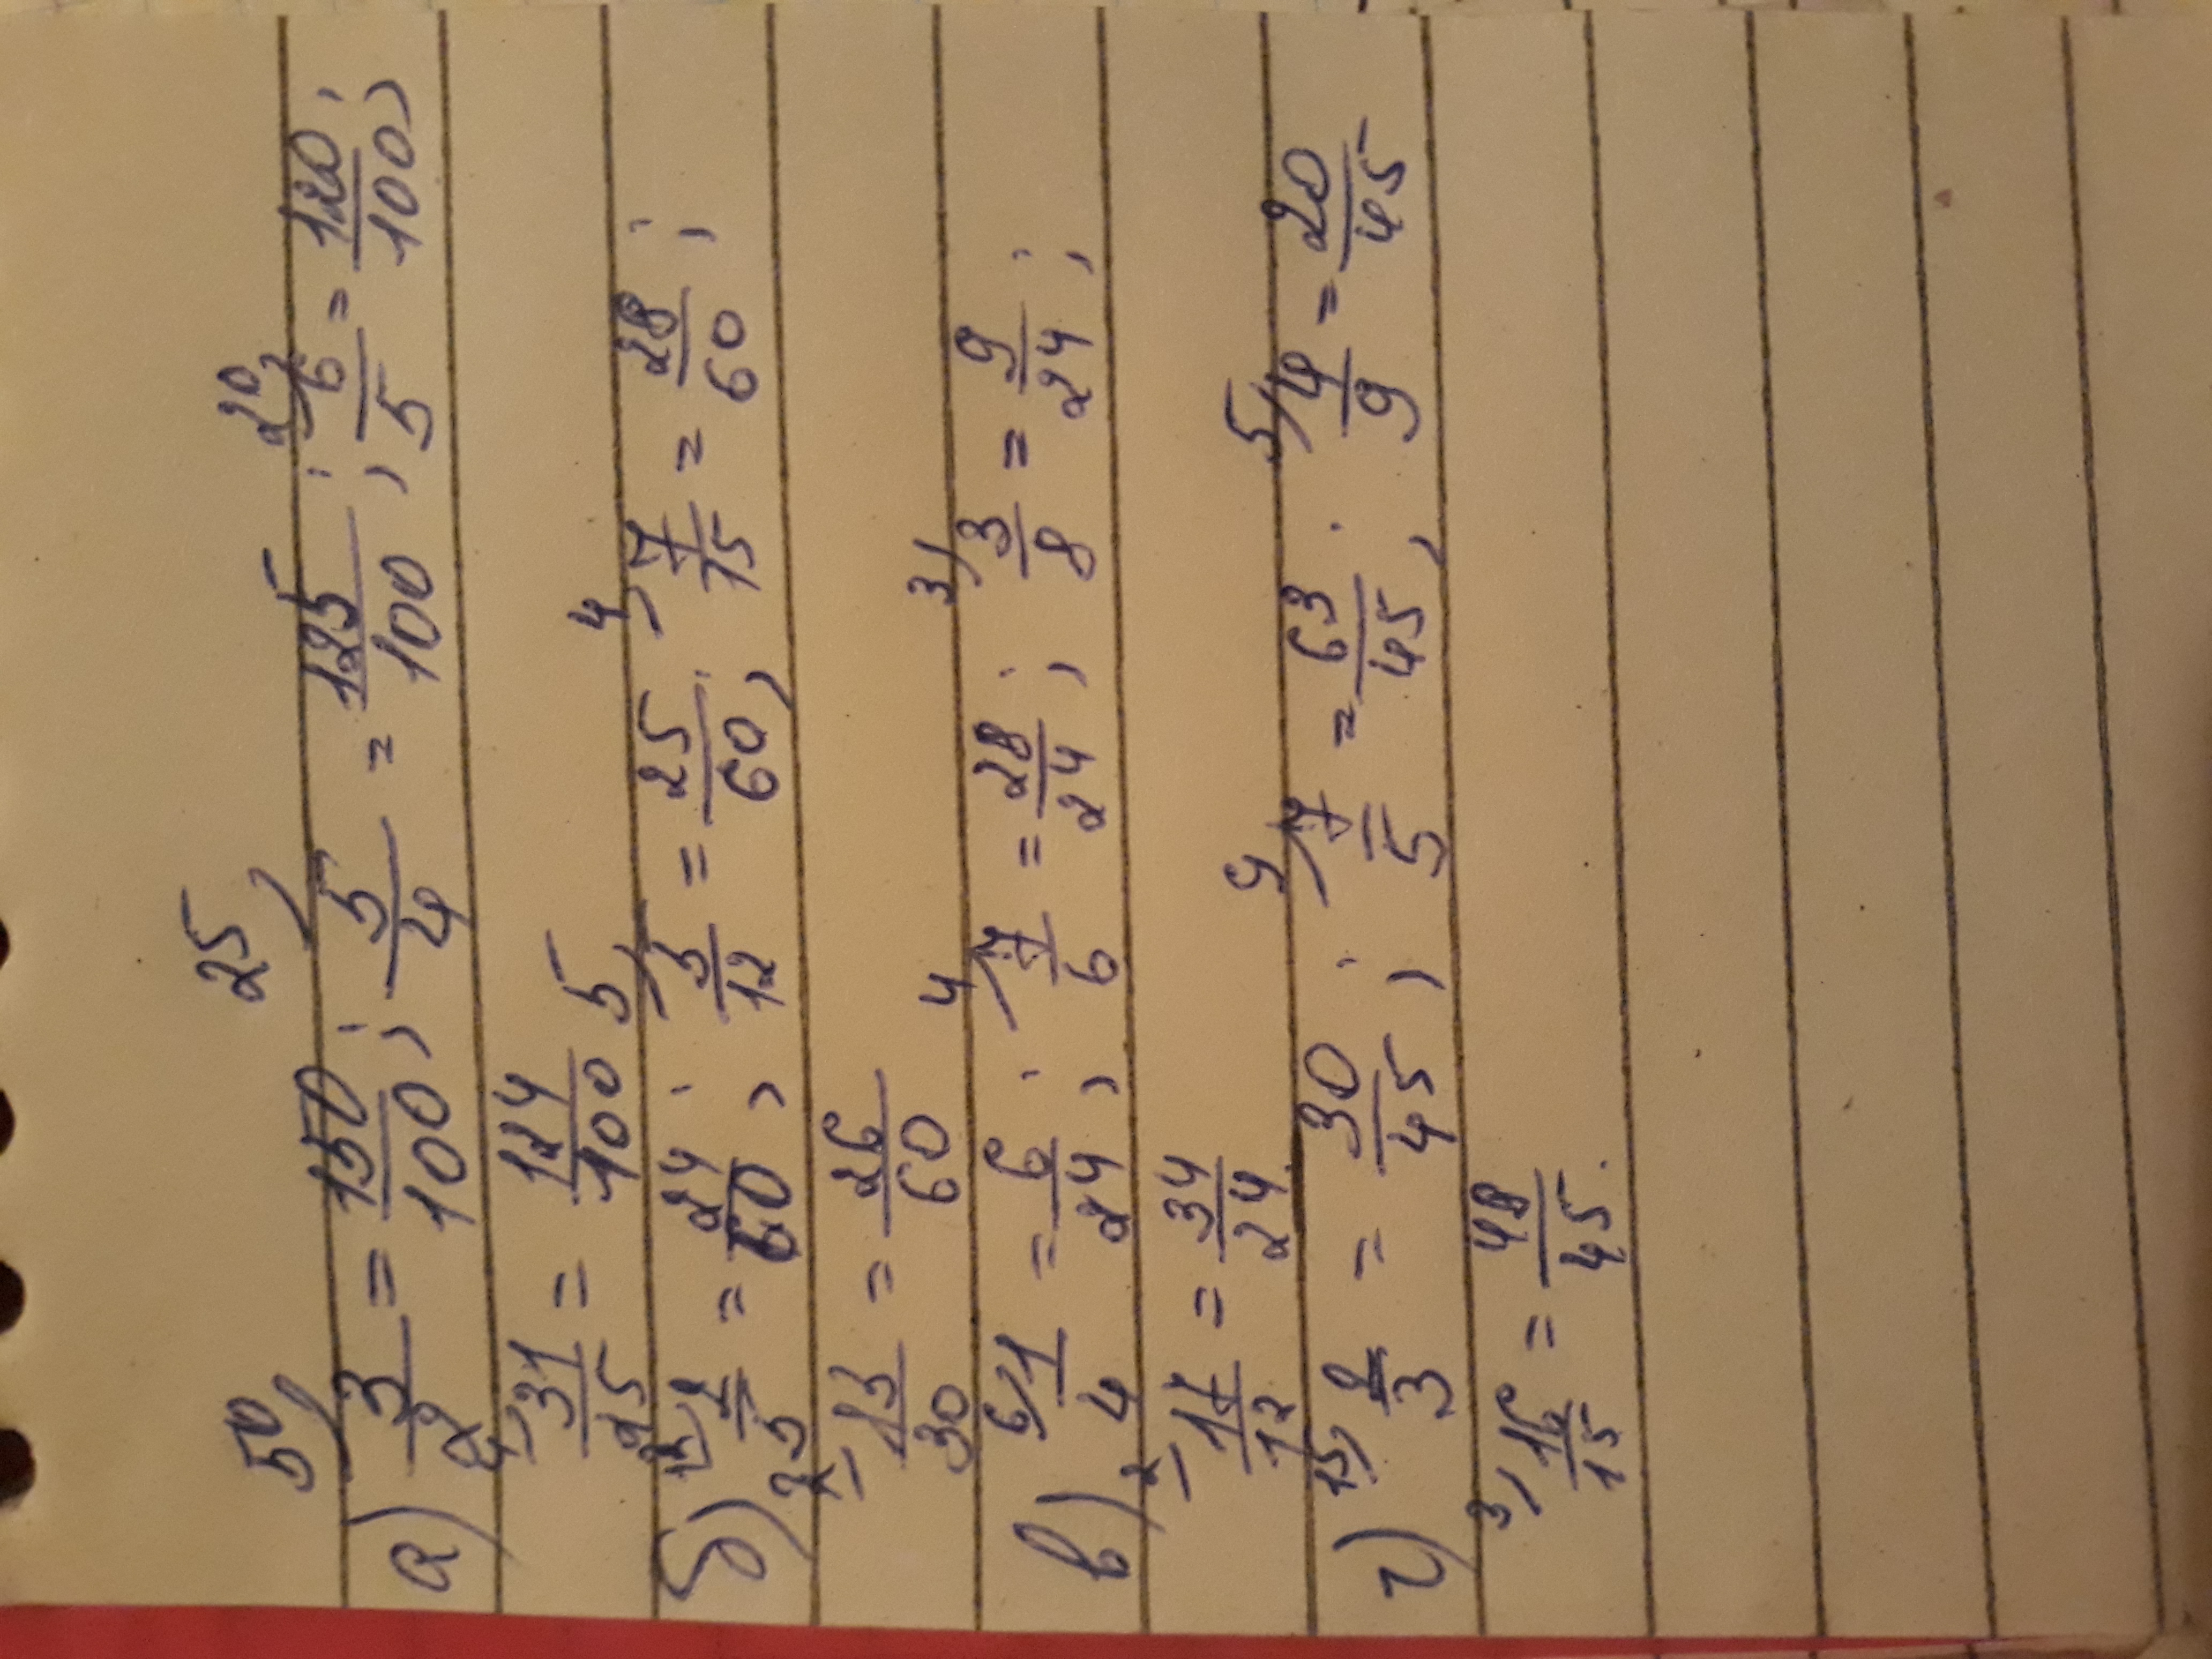 а) 50) 3/2 = 150/100; 25) 5/4 = 125/100; 20) 6/5 = 120/100;
4) 31/25 = 124/100
б) 12) 2/5 = 24/60; 5) 5/12 = 25/60; 4) 7/15 = 28/60;
2) 13/30 = 26/60
в) 6) 1/4 = 6/24; 4) 7/6 = 28/24; 3) 3/8 = 9/24;
2) 17/12 = 34/24.
г) 15) 2/3 = 30/45; 9) 7/5 = 63/45; 5) 4/9 = 20/45
3) 16/15 = 48/45.